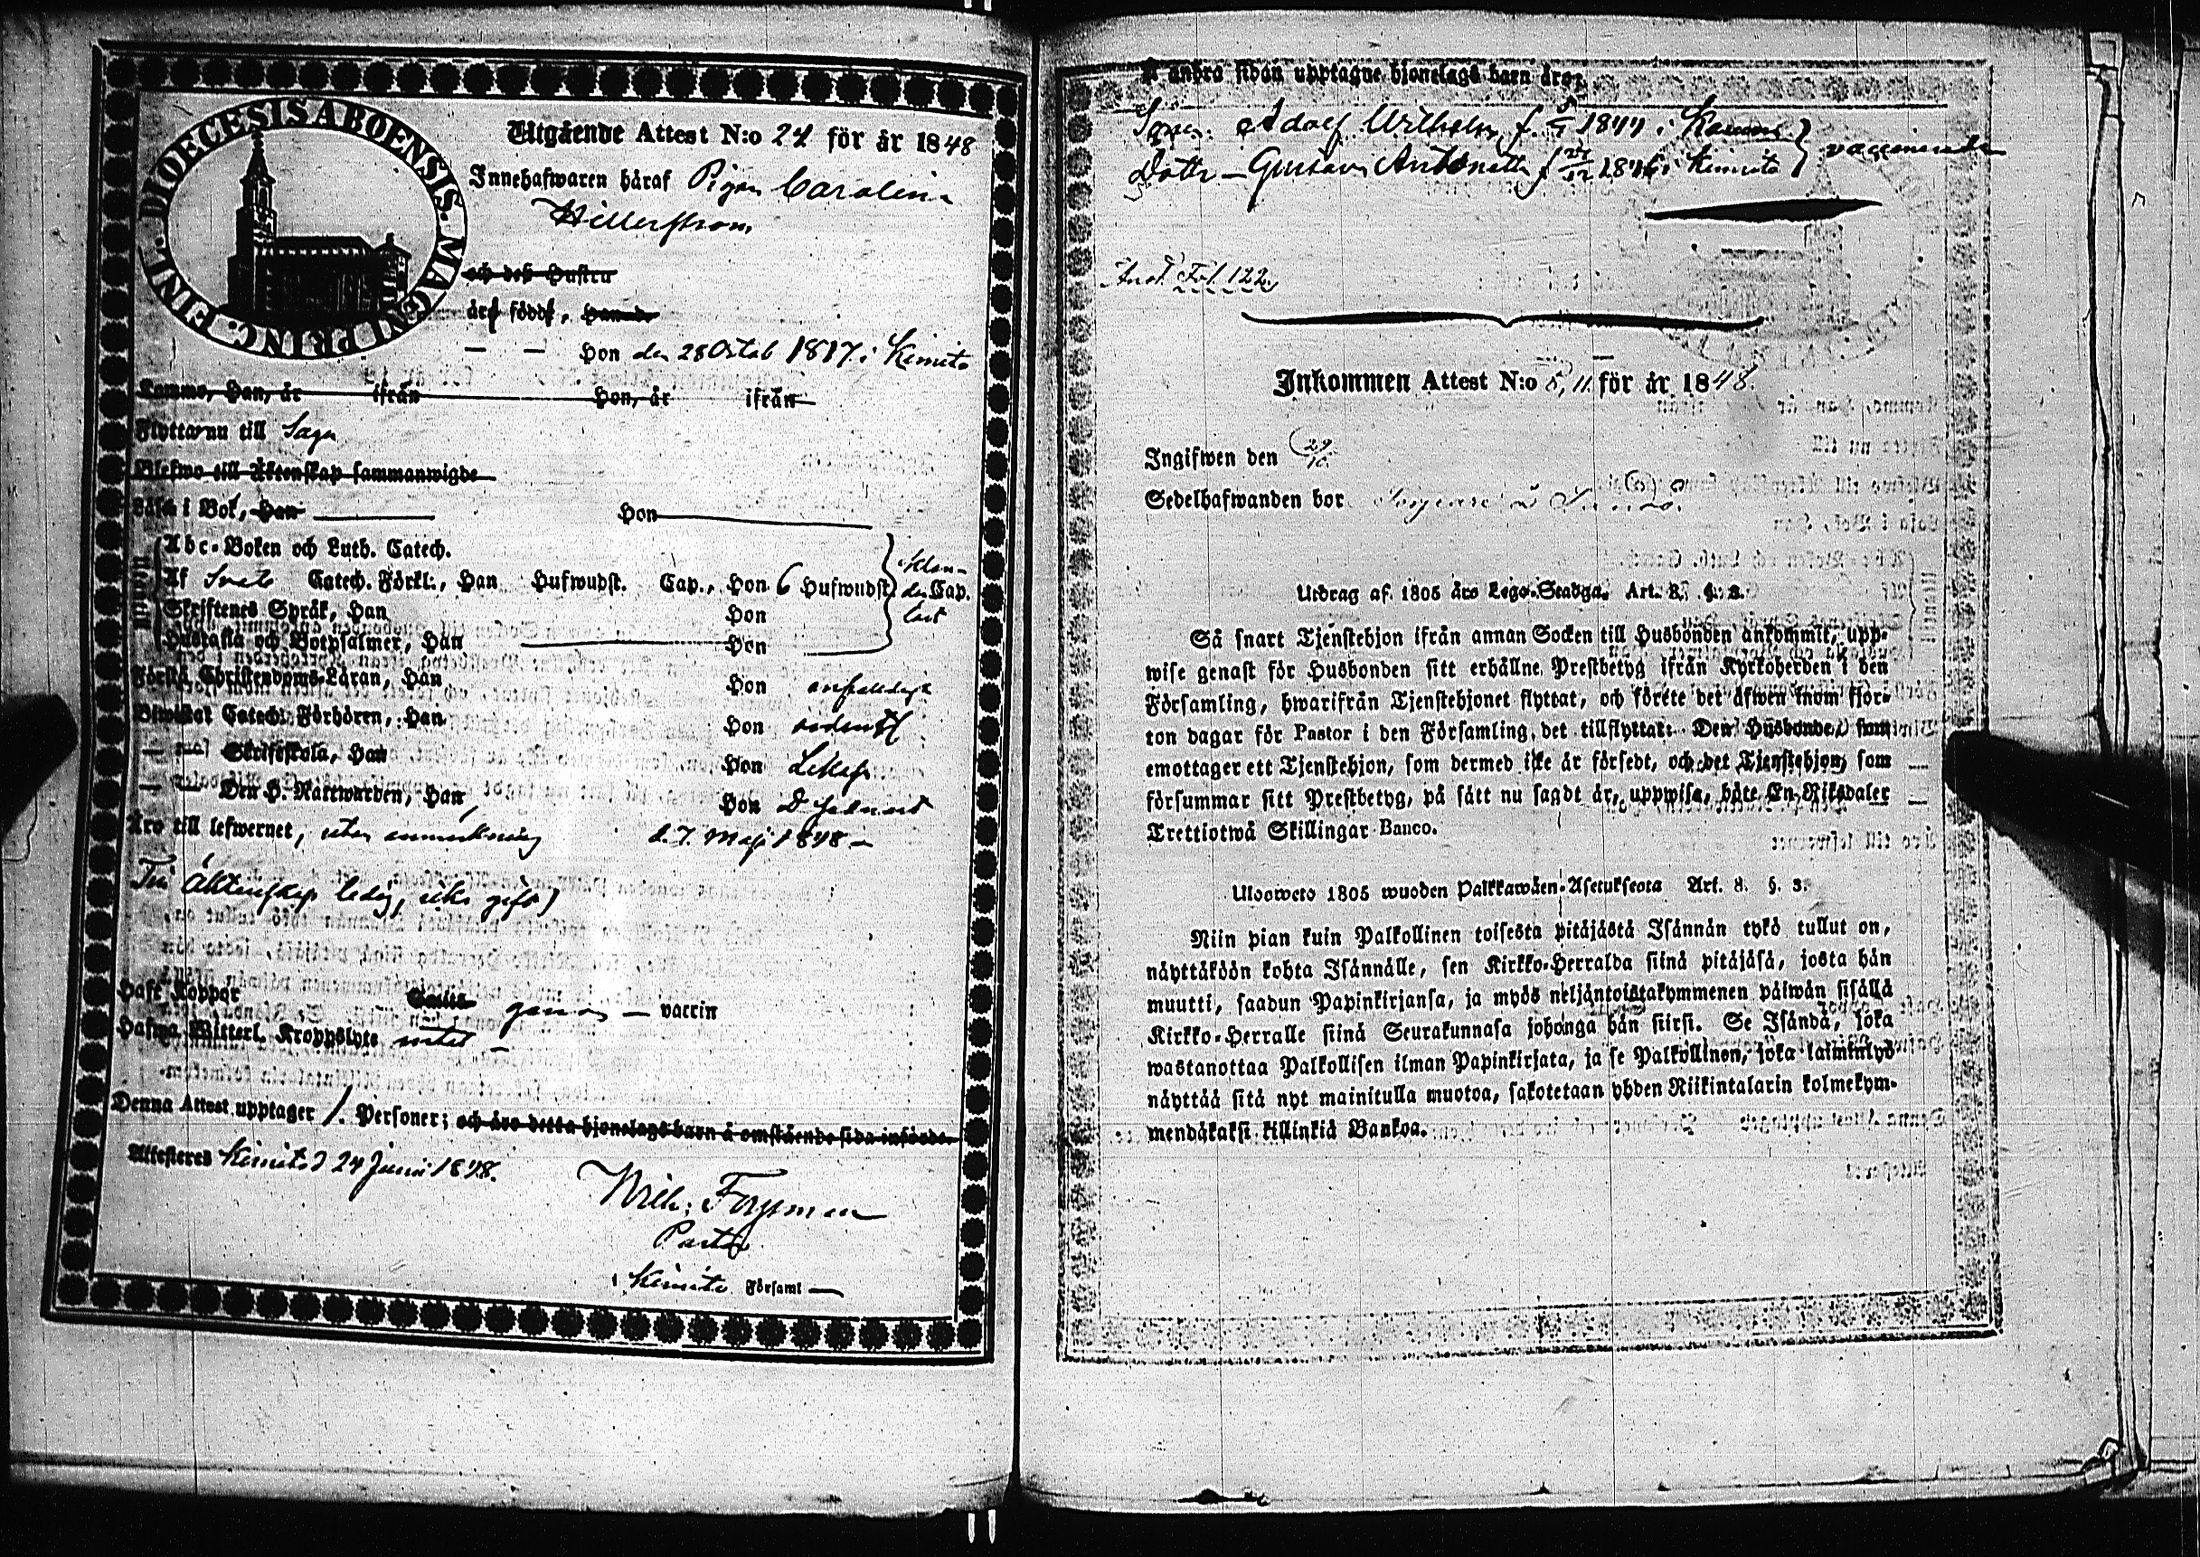 FINL. DIOECESIS ABOENSIS. MAGNI PRINC.
Utgående Attest N:o 24 för år 1848
Innehafwaren håraf Pigan Carolina
Hellerström
och deß Hustru
äro född,
— — Hon den 28 Octob 1817 i Kimito
Kommo, Han, år ifrån Hon, år ifrån
Flyttar nu till Sagu
till Åktenskap sammanwigde
Låsa i Bok, Han Hon
Abc-Boken och Luth. Catech.
Af Svebi Catech. Förkl., Han Hufwudst. Cap., Hon 6 Hufwudst. Cap.
Skriftenes Språk, Han Hon
Hustafla och Botpsalmer, Han Hon
Förstå Christendoms-Läran, Han Hon
Biwistat Catech. Förhören, Han Hon ordentl
Skriftskola, Han Hon Likaså
— — Den H. Nattwarden, Han Hon
Äro till lefwernet, utan anmärkning d. 7 Maji 1848 —
Till Äktenskap ledig, icke gift
Haft Koppor — vaccin
Hafwa Witterl. Kroppslyte intet —
Denna Attest upptager 1. Personer; och äro detta hjonelags barn å omstående sida införde.
Attesteras Kimito d 24 Junii 1848.
Wilh: Forsman
Pastor
i Kimito Församl —
Å andra sidan upptagne hjonelags barn äro:
Son: Adolf Wilhelm f. 1844 i
Dotter — Gustava f 1846 i Kimito
Fol. 122
Inkommen Attest N:o 11. för år 1848.
Ingifwen den 29/10.
Sedelhafwanden bor
Utdrag af 1805 års Lego-Stadga. Art. 8. §. 3.
Så snart Tjenstehjon ifrån annan Socken till Husbonden ankommit, upp-
wise genast för Husbonden sitt erhållne Prestbetyg ifrån Kyrkoherden i den
Församling, hwarifrån Tjenstehjonet flyttat, och förete det äfwen inom fjor-
ton dagar för Pastor i den Församling, det tillflyttat. Den Husbonde, som
emottager ett Tjenstehjon, som dermed icke är försedt, och det Tjenstehjon, som
försummar sitt Prestbetyg, på sätt nu sagdt är, uppwisa, böte En Riksdaler
Trettiotwå Skillingar Banco.
Ulosweto 1805 wuoden Palkkawäen-Asetuksesta Art. 8. §. 3.
Niin pian kuin Palkollinen toisesta pitäjästä Isännän tykö tullut on,
näyttäköön kohta Isännälle, sen Kirkko-Herralda siinä pitäjäsä, josta hän
muutti, saadun Papinkirjansa, ja myös neljäntoistakymmenen päiwän sisällä
Kirkko-Herralle siinä Seurakunnasa johonga hän siirsi. Se Isändä, joka
wastanottaa Palkollisen ilman Papinkirjata, ja se Palkollinen, joka laiminlyö
näyttää sitä nyt mainitulla muotoa, sakotetaan yhden Riikintalarin kolmekym-
mendäkaksi killinkiä Bankoa.